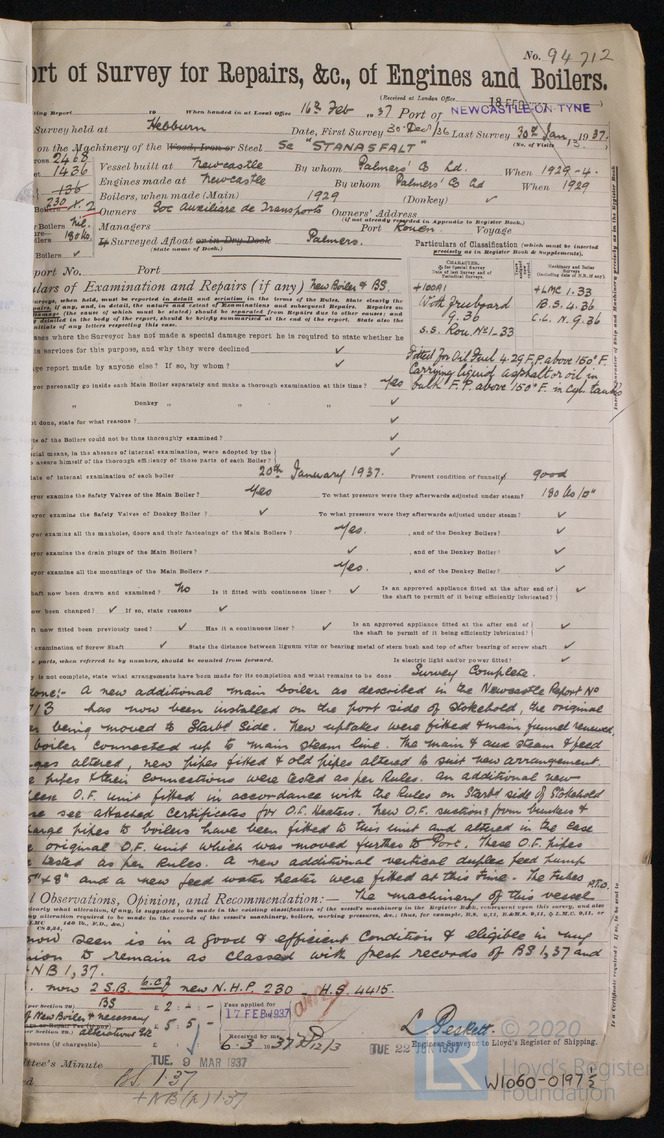 No. 94712
ort of Survey for Repairs, &c., of Engines and Boilers.
(Received at London Office
18 FEB 1937
ing Report 19 When handed in at Local Office 16th Feb 1937 Port of NEWCASTLE-ON-TYNE
Survey held at Hebburn Date, First Survey 30 Dec/36 Last Survey 30th Jan, 1937.
(No. of Visits 13.)
on the Machinery of the Wood, Iron or Steel Sc "STANASFALT"
ross 2468
et 1436
Vessel built at Newcastle By whom Palmers' Co Ld. When 1929-4.
Engines made at Newcastle By whom Palmers' Co Ld When 1929
136
230 x 2
Boilers, when made (Main) 1929 (Donkey) ✓
Owners Soc Auxiliare de Transports Owners' Address
(if not already recorded in Appendix to Register Book.)
Boilers Nil.
Managers Port Rouen Voyage
180 lbs.
If Surveyed Afloat or in Dry Dock Palmers.
(State name of Dock.)
Boilers ✓
Particulars of Classification (which must be inserted precisely as in Register Book & Supplements).
port No. Port
lars of Examination and Repairs (if any) New Boiler & BS.
+100A1
With freeboard
9.36
S.S. Rou. No1-33
+LMC 1.33
B.S. 4.36
C.L. N. 9.36
Fitted for Oil Fuel 4.29 F.P. above 150° F.
Carrying liquid asphalt or oil in
bulk F.P. above 150° F. in cyl. tanks
ases where the Surveyor has not made a special damage report he is required to state whether he
is services for this purpose, and why they were declined ✓
ge report made by anyone else? If so, by whom? ✓
yor personally go inside each Main Boiler separately and make a thorough examination at this time? Yes
" Donkey " " " ✓
t done, state for what reasons? ✓
ts of the Boilers could not be thus thoroughly examined? ✓
cial means, in the absence of internal examination, were adopted by the
o assure himself of the thorough efficiency of those parts of each Boiler? ✓
ate of internal examination of each boiler 20th January 1937. Present condition of funnel good
yor examine the Safety Valves of the Main Boiler? Yes To what pressure were they afterwards adjusted under steam? 180 lbs/□"
yor examine the Safety Valves of Donkey Boiler? ✓ To what pressure were they afterwards adjusted under steam? ✓
yor examine all the manholes, doors and their fastenings of the Main Boilers? Yes. , and of the Donkey Boilers? ✓
yor examine the drain plugs of the Main Boilers? ✓ , and of the Donkey Boiler? ✓
yor examine all the mountings of the Main Boilers? Yes. , and of the Donkey Boiler? ✓
haft now been drawn and examined? No Is it fitted with continuous liner? ✓ Is an approved appliance fitted at the after end of the shaft to permit of it being efficiently lubricated? ✓
ow been changed? ✓ If so, state reasons ✓
ft now fitted been previously used? ✓ Has it a continuous liner? ✓ Is an approved appliance fitted at the after end of the shaft to permit of it being efficiently lubricated? ✓
examination of Screw Shaft ✓ State the distance between lignum vitæ or bearing metal of stern bush and top of after bearing of screw shaft ✓
e parts, when referred to by numbers, should be counted from forward. Is electric light and/or power fitted? ✓
y is not complete, state what arrangements have been made for its completion and what remains to be done Survey Complete.
done:- A new additional main boiler as described in the Newcastle Report No
713 has now been installed on the port side of Stokehold, the original
er being moved to Starbd Side. New uptakes were fitted & main funnel renewed,
boiler connected up to main steam line. The main & aux steam & feed
ges altered, new pipes fitted & old pipes altered to suit new arrangement.
e pipes & their connections were tested as per Rules. An additional new
O.F. unit fitted in accordance with the Rules on Starbd side of Stokehold
se see attached certificates for O.F. Heaters. New O.F. suctions from bunkers &
harge pipes to boilers have been fitted to this unit and altered in the case
e original O.F. unit which was moved further to Port. These O.F. pipes
e tested as per Rules. A new additional vertical duplex feed pump
5" x 8" and a new feed water heater were fitted at this time. The Tubes P.T.O.
l Observations, Opinion, and Recommendation:— The machinery of this vessel
now seen is in a good & efficient condition & eligible in my
nion to remain as classed with fresh records of BS 1,37 and
NB 1,37.
now 2 S.B. 6.C.F new N.H.P. 230 H.S 4415.
(per Section 28) BS £ 2 : - : -
of New Boiler & necessary
alterations &c £ 5 : 5 : -
penses (if chargeable) £ : :
Fees applied for
17 FEB 1937
Received by me
6-3 1937
L. Beslett.
Engineer-Surveyor to Lloyd's Register of Shipping.
ttee's Minute TUE. 9 MAR 1937
TUE 22 JUN 1937
BS 1.37
+NB(P) 1.37
© 2020
LR
Lloyd's Register
Foundation
W1060-0197½